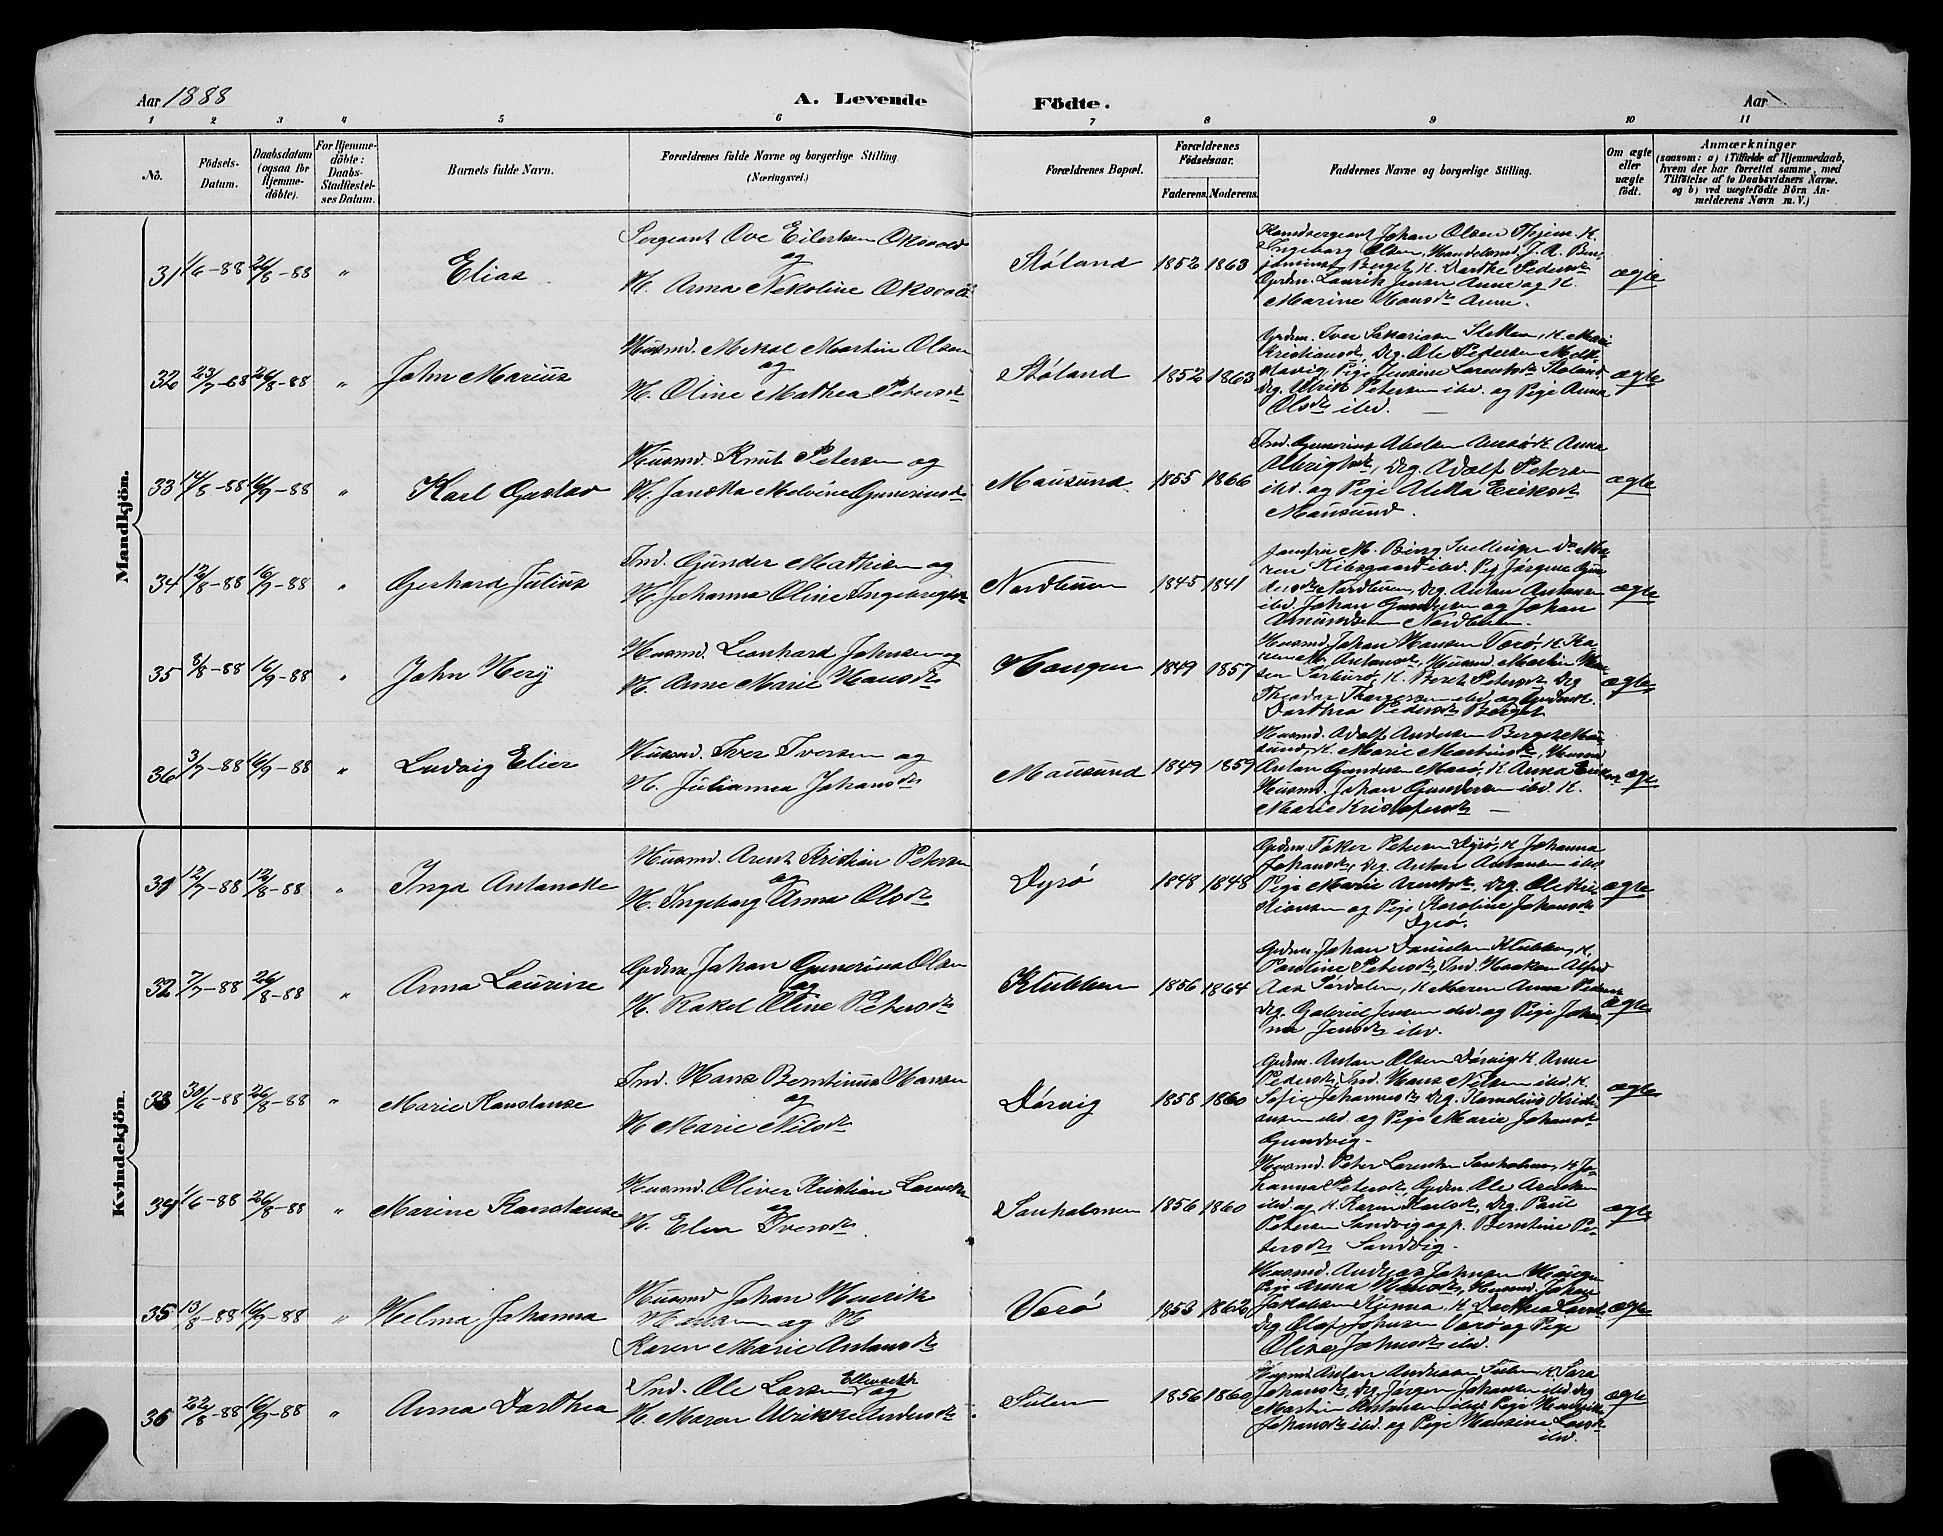 Aar 1888
A. Levende Födte.
Aar
1 2 3 4 5 6 7 8 9 10 11
No.
Födsels-
Datum.
Daabsdatum
(ogsaa for
Hjemme-
döbte).
For Hjemme-
döbte:
Daabs-
Stadfæstel-
ses Datum.
Barnets fulde Navn.
Forældrenes fulde Navne og borgerlige Stilling
(Næringsvei.)
Forældrenes Bopæl.
Forældrenes
Födselsaar.
Faderens. Moderens.
Faddernes Navne og borgerlige Stilling.
Om ægte
eller
uægte
födt.
Anmærkninger
(saasom: a) i Tilfælde af Hjemmedaab,
hvem der har forrettet samme, med
Tilföielse af to Daabsvidners Navne.
og b) ved uægtefödte Börn An-
melderens Navn m. V.)
Mandkjön.
31 1/6-88 26/8-88 " Elias
Sergeant Ove Eilertsen Oksvold
og
H. Anna Nekoline Oksvold
Stöland 1852 1863
Komsergeant Johan Olsen Hjem H.
Ingeborg Olsen, Handelsmd J. A. Ben-
jaminsen Berget, H. Dorthe Pedersdt
Grdm. Lauritz Jensen Aune og H.
Marine Hansdt Aune.
ægte
32 23/7-88 26/8-88 " John Marius
Husmd. Mekal Martin Olsen
og
H. Oline Mathea Petersdt
Stöland 1852 1863
Grdm. Iver Sakariasen Sletten, H. Mari
Kristiansdt, Ug. Ole Pedersen
Pige Jensine Larentsdt Stöland,
Ug. Ulrik Petersen ibd. og Pige Anna
Olsdt ibd.
ægte
33 14/5-88 16/9-88 " Karl Gustav
Husmd. Knut Petersen og
H. Janetta Melvine Guneriusdt
Mausund 1855 1866
Ind. Gunerius Abelsen H. Anna
Albrigtsdt, Ug. Adolf Petersen
ibd. og Pige Aletta Eriksdt
Mausund.
ægte
34 12/8-88 16/9-88 " Gerhard Julius
Ind. Gunder Mathisen og
H. Johanna Oline Ingebrigtsdt
Nordbuen 1845 1841
Jomfru M. Bing Svellingen Do Ma-
ren Kibsgaard ibd. Pig. Jörgine Gun-
dersdt Nordbuen, Ug. Anton Antonsen
ibd. Johan Gundersen og Johan
Amundsen Nordbuen.
ægte
35 8/8-88 16/9-88 " John Mery
Husmd. Leonhard Johnsen og
H. Anne Marie Hansdt
Haugen 1849 1857
Husmd. Johan Hansen Værö, H. Ka-
ren M. Antonsdt, Husmd. Martin Han-
sen Sörburö, H. Beret Petersdt, Ug
Theodor Thorgersen ibd, og
Dorthea Pedersdt Berget
ægte
36 3/7-88 16/9-88 " Ludvig Elier
Husmd. Iver Iversen og
H. Julianna Johansdt
Mausund 1849 1859
Husmd. Adolf Andersen Berget Mau-
sund, H. Marie Martinsdt, Husmd
Anton Gundersen Masö, H. Anna Eriksdt
Husmd. Johan Gundersen ibd. H.
Marie Kristofersdt
ægte
Kvindekjön.
31 12/7-88 12/8-88 " Inga Antonette
Husmd. Arent Kristian Petersen
og
H. Ingeborg Anna Olsdt
Dyrö 1848 1848
Grdm. Peter Petersen Dyrö, H. Johanna
Johansdt, Ug. Anton Antonsen ibd
Pige Marie Arentsdt, Ug. Ole Kris-
tiansen og Pige Karoline Johansdt
Dyrö.
ægte
32 7/7-88 26/8-88 " Anna Laurine
Grdm. Johan Gunerius Olsen
og
H. Rakel Oline Petersdt
Klubben 1856 1864
Grdm. Johan Danielsen Klubben, H.
Pauline Petersdt, Ind. Haakon Alfred
Aas Sördalen, H. Maren Anna Pedersdt
Ug. Gabriel Jensen ibd. og Pige Johan-
na Jensdt ibd.
ægte
33 30/6-88 26/8-88 " Marie Konstanse
Ind. Hans Berntinus Hansen
og
H. Marie Nilsdt
Dörvig 1858 1860
Grdm. Anton Olsen Dörvig, H. Anne
Pedersdt, Ind. Hans Nilsen ibd. H.
Sofie Johannesdt, Ug. Kornelius Kristi-
ansen ibd. og Pige Marie Johansdt
Gundvig.
ægte
34 1/6-88 26/8-88 " Marine Konstanse
Husmd. Oliver Kristian Larentsen
og
H. Elen Iversdt.
Sauholmen 1856 1860
Husmd. Peter Larentsen Sauholmen, H. Jo-
hanna Petersdt, Grdm. Ole Arentsen
ibd. og H. Karen Karlsdt, Ug. Paul
Petersen Sandvig og p. Berntine Pe-
tersdt Sandvig.
ægte
35 13/8-88 16/9-88 " Helma Johanna
Husmd Johan Henrik
Hansen og H
Karen Marie Antonsdt
Værö 1853 1862
Husmd. Andreas Johnsen Haugen
Pige Anna Hansdt, Husmd Johan
Jakobsen Kunna, H. Dorthea
Ug. Olaf Johnsen Værö og Pige
Oline Johnsdt ibd.
ægte
36 22/8-88 16/9-88 " Anna Dorthea
Ind. Ole Larsen Ellevsen og
H. Maren Ulrikke Andersdt.
Sulen 1856 1860
Husmd Anton Andreasen Sulen H. Sara
Johansdt, Ug. Jörgen Johansen ibd Ug
Martin ibd Pige Hendrikke
Johansdt ibd. og Pige Hansine Larsdt
ibd.
ægte